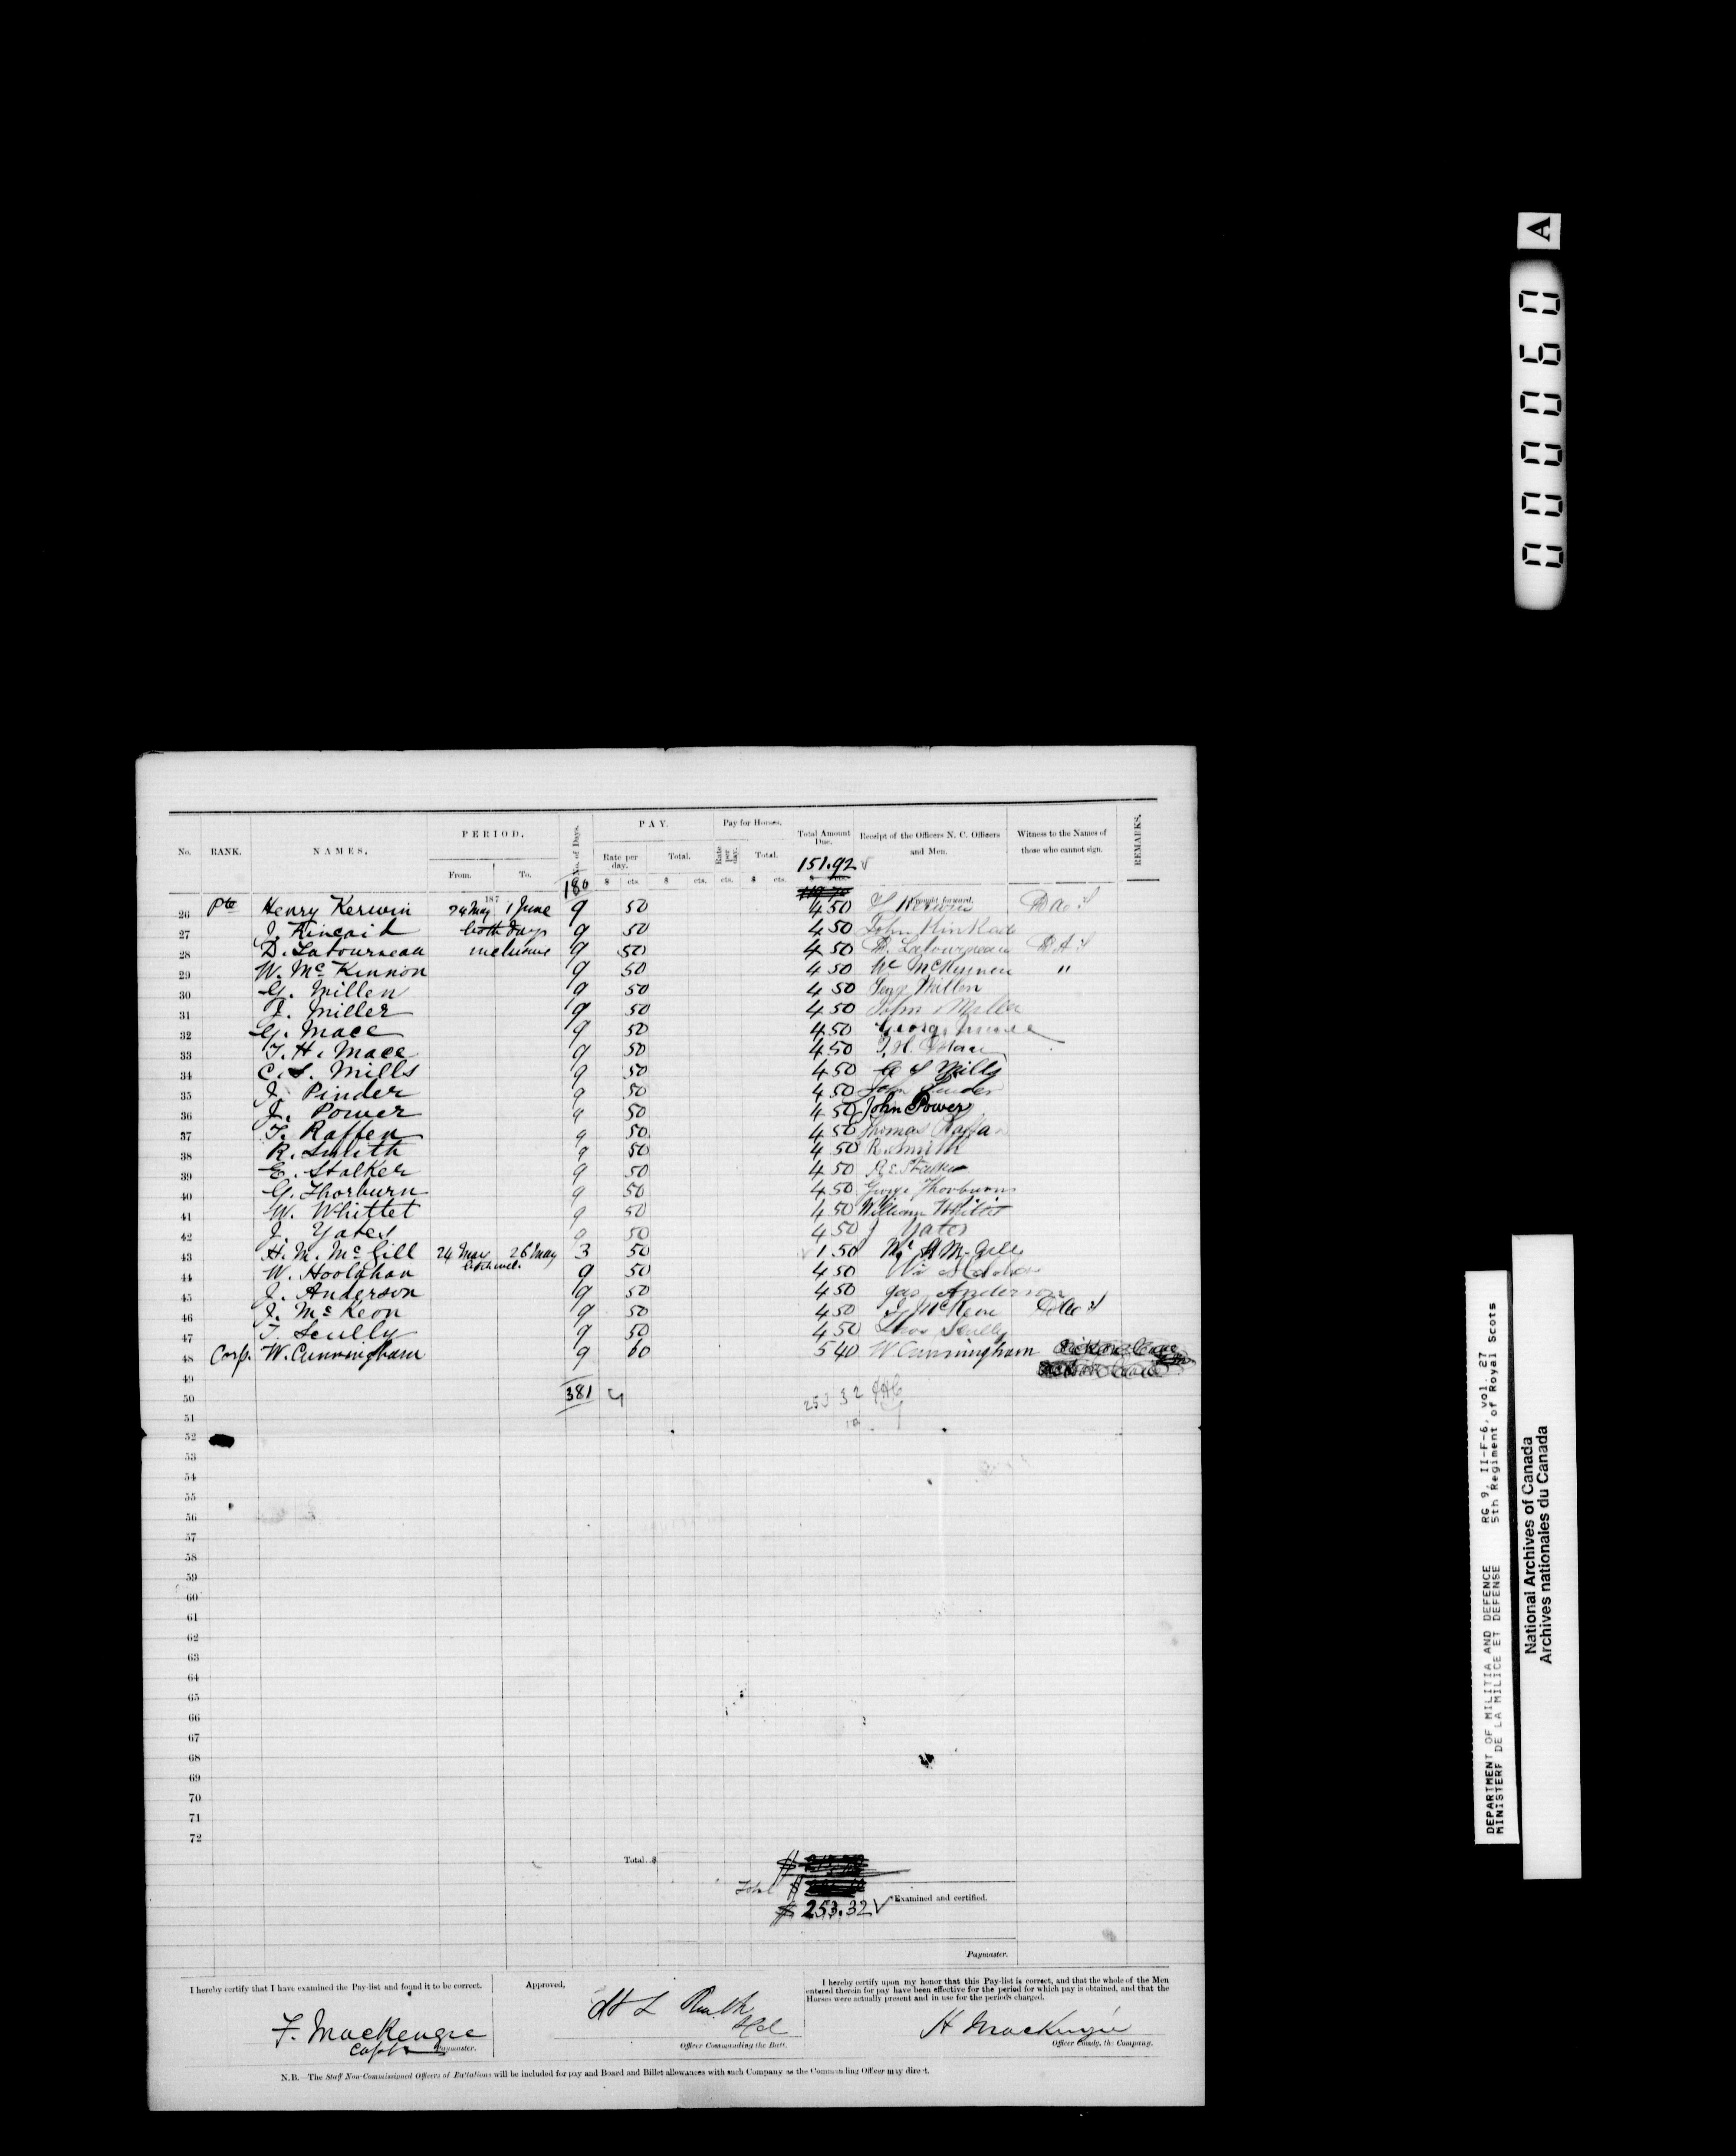 A
000060
DEPARTMENT OF MILITIA AND DEFENCE RG 9, II-F-6, vol. 27
MINISTERE DE LA MILICE ET DEFENSE 5th Regiment of Royal Scots
National Archives of Canada
Archives nationales du Canada
No. RANK. NAMES. PERIOD. No. of Days. PAY. Pay for Horses. Total Amount Due. Receipt of the Officers N. C. Officers and Men. Witness to the Names of those who cannot sign. REMARKS.
From. To. Rate per day. Total. Rate per day. Total. 151.92
$ cts. $ cts. cts. $ cts.
180
187 Brought forward.
26 Pte Henry Kerwin 24 May 1 June 9 50 4 50 H Kerwin
27 J. Kincaid both days 9 50 4 50 John Kinkad
28 D. Latourneau inclusive 9 50 4 50 D. Latourneau
29 W. Mc Kinnon 9 50 4 50 "
30 G. Millen 9 50 4 50 Millen
31 J. Miller 9 50 4 50 John Miller
32 G. Mace 9 50 4 50
33 T. H. Mace 9 50 4 50 T. H. Mace
34 C. S. Mills 9 50 4 50 C S Mills
35 J. Pinder 9 50 4 50 John Pinder
36 J. Power 9 50 4 50 John Power
37 T. Raffen 9 50 4 50 Thomas Raffan
38 R. Smith 9 50 4 50 R. Smith
39 E. Stalker 9 50 4 50 Stalker
40 G. Thorburn 9 50 4 50 George Thorburn
41 W. Whittet 9 50 4 50 William Whittet
42 J. Yates 9 50 4 50 J Yates
43 H. M. Mc Gill 24 May 26 May 3 50 1 50
both incl.
44 W. Hoolahan 9 50 4 50
45 J. Anderson 9 50 4 50 Jas Anderson
46 J. Mc Keon 9 50 4 50 J McKeon
47 T. Scully 9 50 4 50 Thos Scully
48 Corp. W. Cunningham 9 60 5 40 W Cunningham
49
50 381 253 32
51
52
53
54
55
56
57
58
59
60
61
62
63
64
65
66
67
68
69
70
71
72
Total..$
Total $
$ 253.32
Examined and certified.
Paymaster.
I hereby certify that I have examined the Pay-list and found it to be correct.
F. MacKenzie
Capt
Paymaster.
Approved,
Officer Commanding the Batt.
I hereby certify upon my honor that this Pay-list is correct, and that the whole of the Men
entered therein for pay have been effective for the period for which pay is obtained, and that the
Horses were actually present and in use for the periods charged.
H MacKenzie
Officer Comdg. the Company.
N.B.—The Staff Non-Commissioned Officers of Battalions will be included for pay and Board and Billet allowances with such Company as the Commanding Officer may direct.